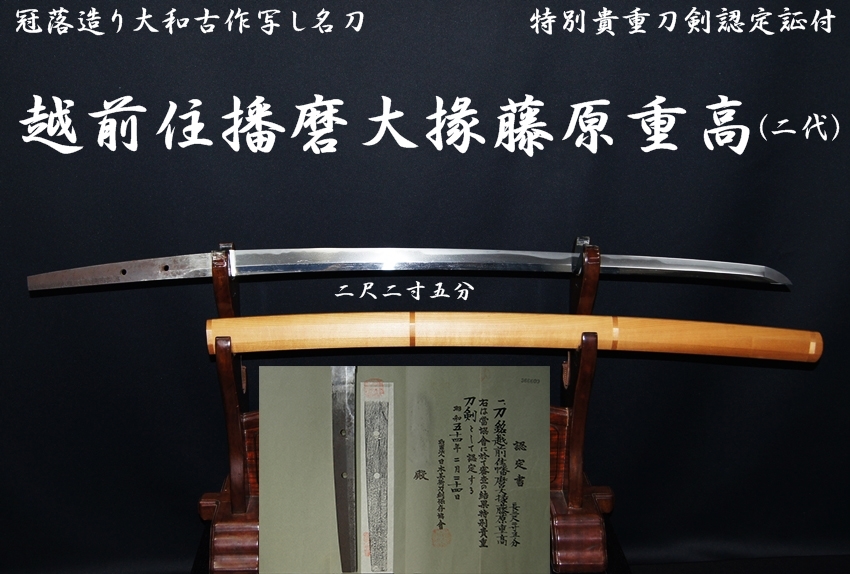 冠落造り大和古作写し名刀
特別貴重刀剣認定証付
越前住播磨大掾藤原重高(二代)
二尺二寸五分
認定書
一刀銘越前住播磨大掾藤原重高
長弐尺弐寸五分
右は當協會に於て審査の結果特別貴重
刀剣として認定する
昭和五十四年二月二十四日
財團法人日本美術刀剣保存協會
殿